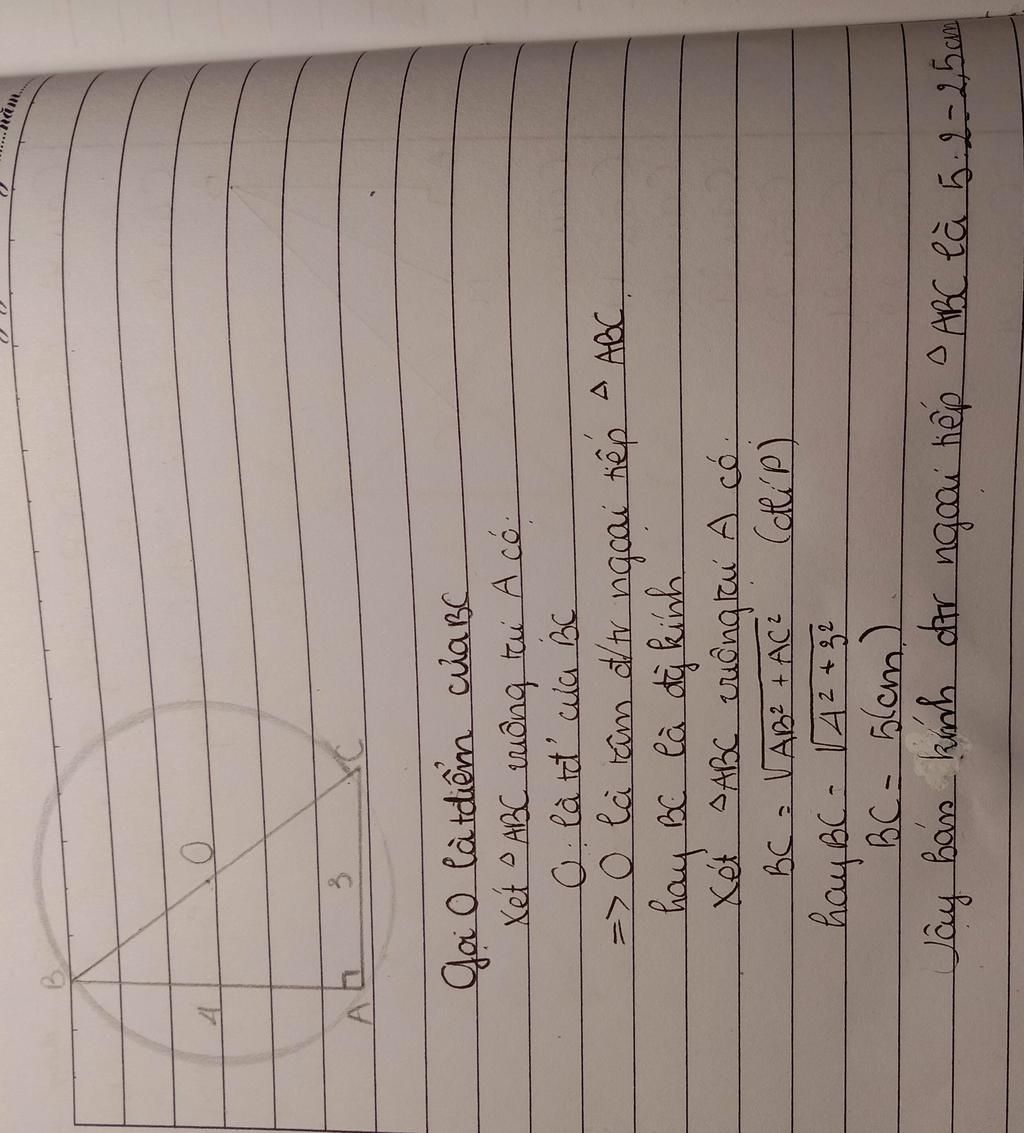 năm
B
4
O
3
A
C
Gọi O là tđiểm của BC
Xét △ABC vuông tại A có:
O: là tđ' của BC
=> O là tâm đ/tr ngoại tiếp △ ABC.
hay BC là đg kính
Xét △ABC vuông tại A có:
BC = √AB² + AC² (đlí P)
hay BC = √4² + 3²
BC = 5(cm)
Vậy bán kính đtr ngoại tiếp △ ABC là 5:2=2,5cm